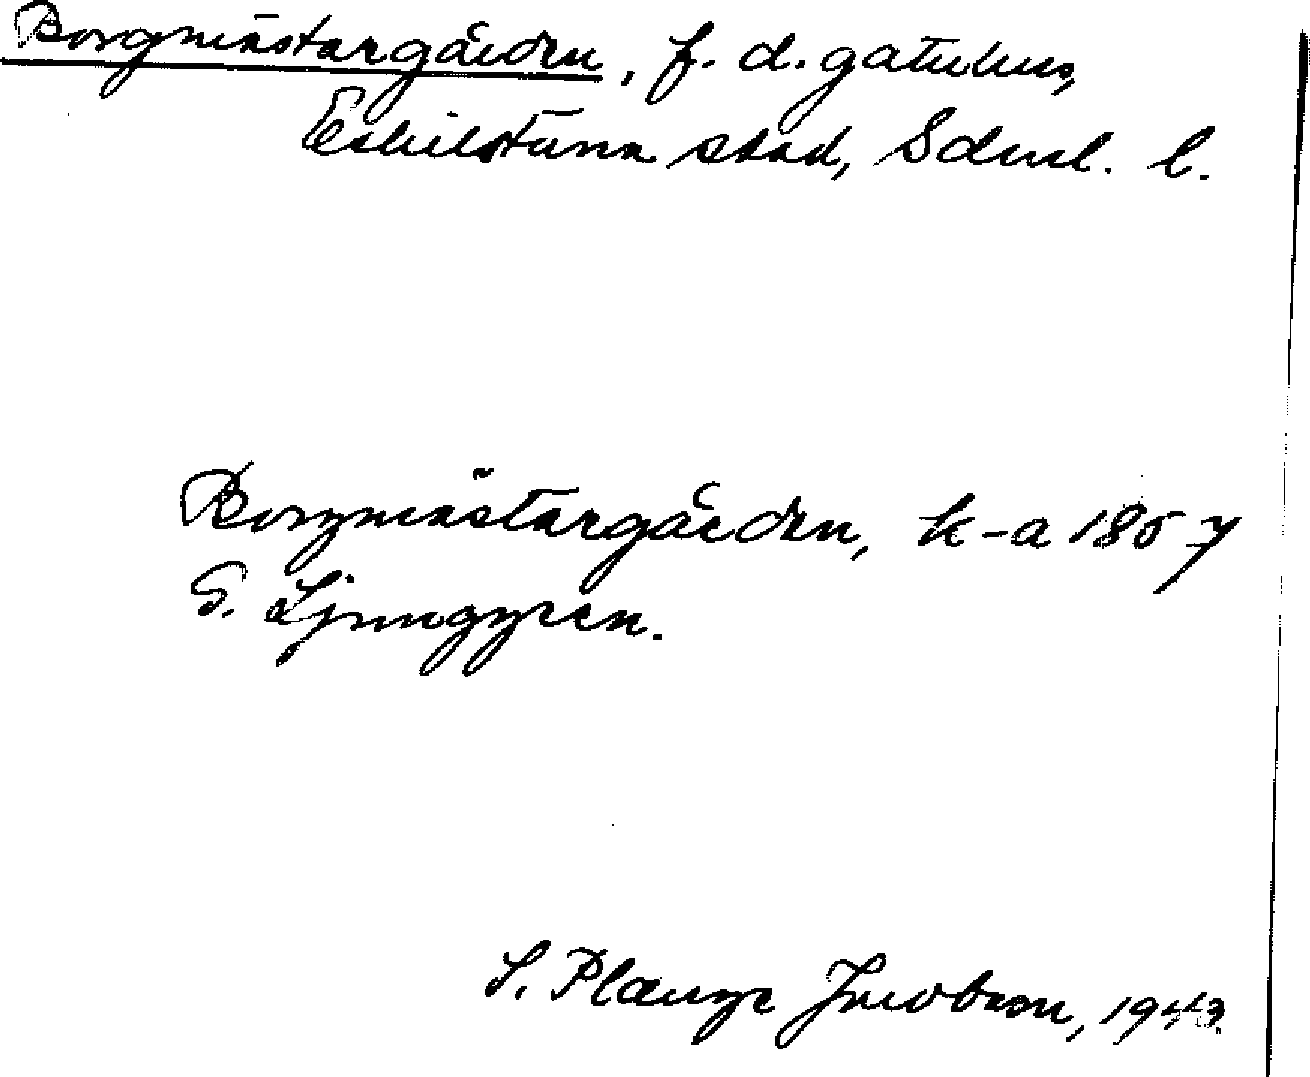 Borgmästargården, f. d. gatuhus,
Eskilstuna stad, Sdml. l.
Borgmästargården, k-a 1857
G. Ljunggren.
S. Plange Jacobson, 1943.